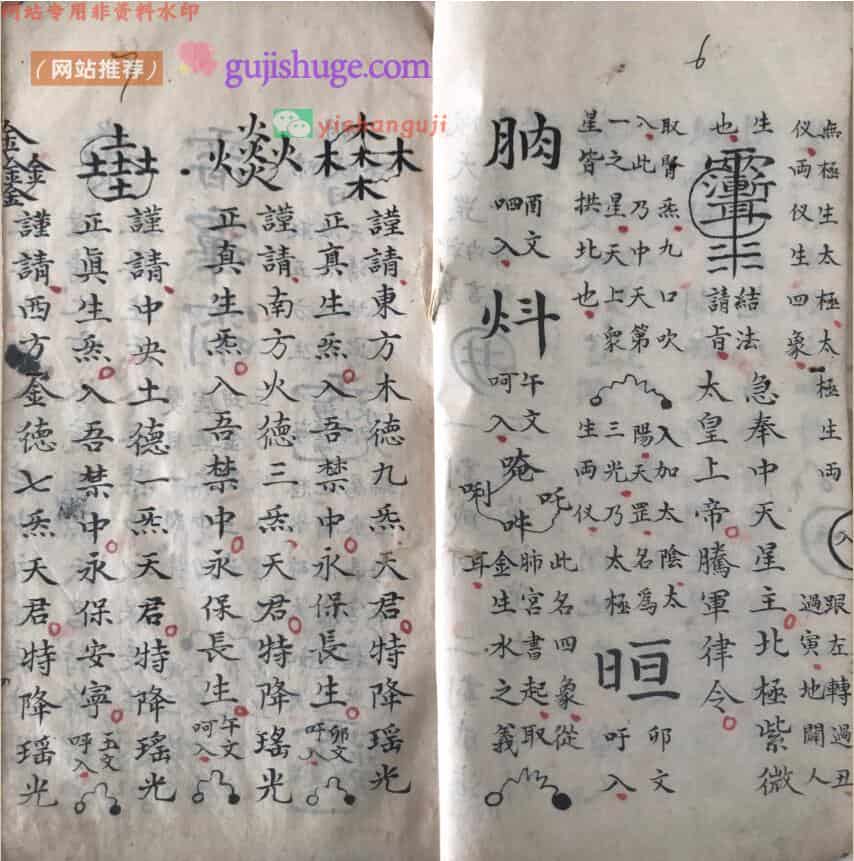 網站专用非资料水印
（网站推荐）
gujishuge.com
yishanguji
6
無極生太極太極生兩
儀兩儀生四象
入
跟左轉過丑
過寅地開人
生
也
結法
請旨
急奉中天星主北極紫微
太皇上帝騰軍律令
取腎炁九口吹
入此乃中天第
一之星天上衆
星皆拱北也
入加太陰太
陽天罡名為
三光乃太極
生兩儀
晅
卯文
吁入
肭
酉文
呬入
炓
午文
呵入
唵
吒
唎
吽
此名四象從
肺宮書起取
金生水之義
耳
7
木木木木木
謹請東方木德九炁天君特降瑤光
正真生炁入吾禁中永保長生
卯文
吁入
火炎炎火
謹請南方火德三炁天君特降瑤光
正真生炁入吾禁中永保長生
午文
呵入
土土土土土
謹請中央土德一炁天君特降瑤光
正眞生炁入吾禁中永保安寧
五文
呼入
金金金金金
謹請西方金德七炁天君特降瑤光